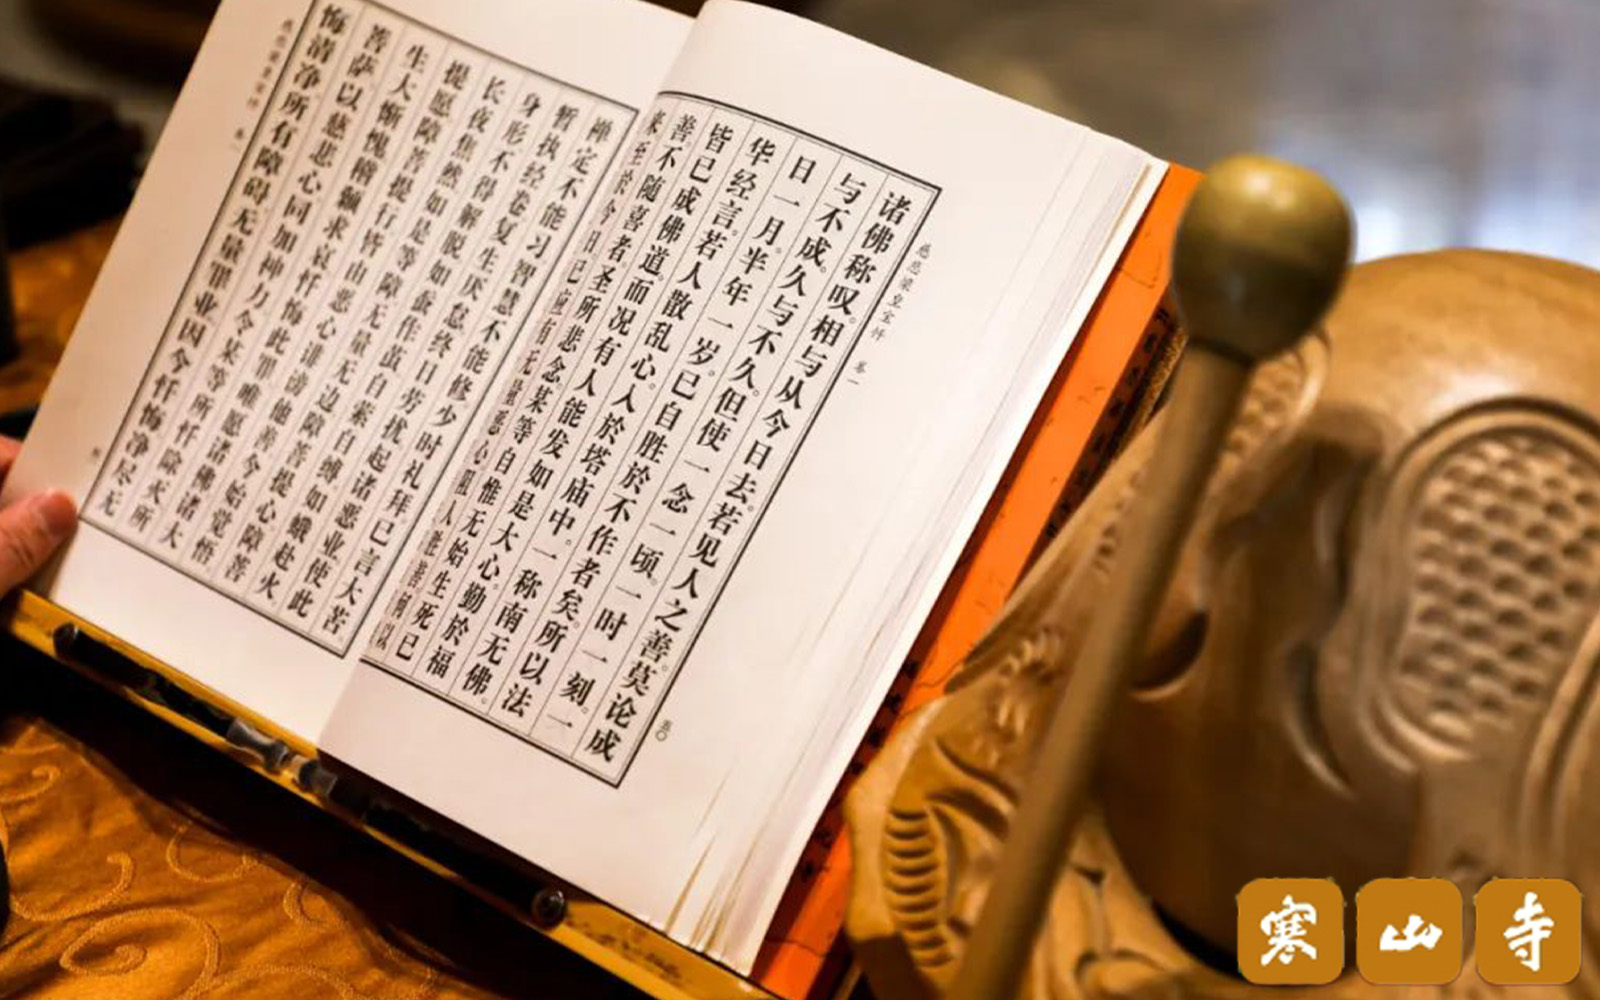 慈悲梁皇宝忏 卷一 五〇
诸佛称叹。相与从今日去。若见人之善。莫论成
与不成。久与不久。但使一念一顷。一时一刻。一
日一月。半年一岁。已自胜於不作者矣。所以法
华经言。若人散乱心。入於塔庙中。一称南无佛。
皆已成佛道。而况有人能发如是大心。勤於福
善。不随喜者。圣所悲念。某等自惟无始生死已
来至於今日已应有无量恶心阻人胜善
禅定不能习智慧不能修少时礼拜已言大苦
暂执经卷复生厌怠终日劳扰起诸恶业使此
身形不得解脱如蚕作茧自萦自缚如蛾赴火
长夜焦然如是等障无量无边障菩提心障菩
提愿障菩提行皆由恶心诽谤他善今始觉悟
生大惭愧稽颡求哀忏悔此罪唯愿诸佛诸大
菩萨以慈悲心同加神力令某等所忏除灭所
悔清净所有障碍无量罪业因今忏悔净尽无
寒山寺